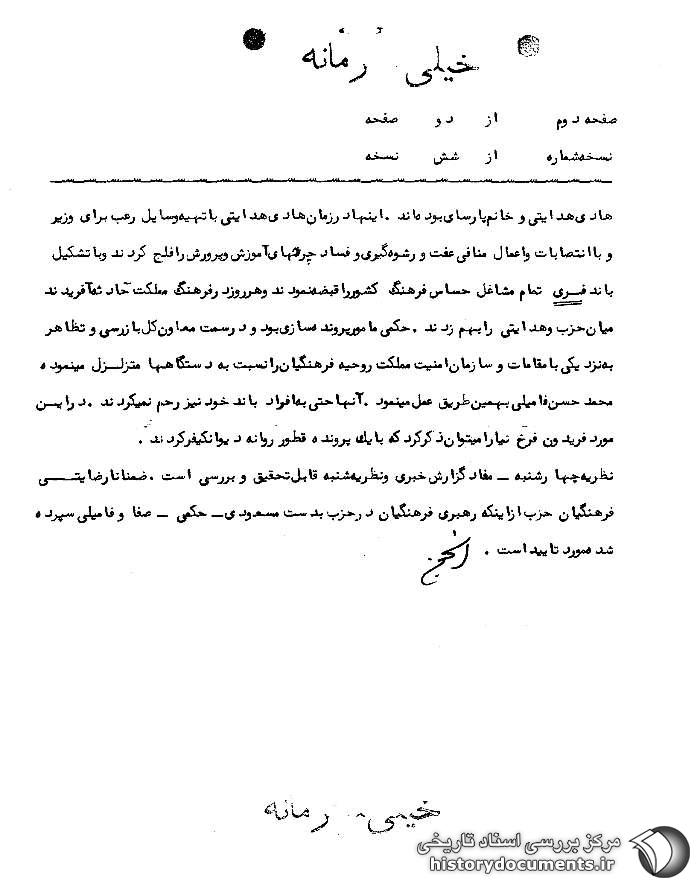 خیلی رمانه
صفحه دوم از دو صفحه
نسخه شماره از شش نسخه
هادی هدایتی و خانم پارسای بوده اند . اینها در زمان هادی هدایتی با تهیه وسایل رعب برای وزیر
و با انتصابات واعمال منافی عفت و رشوه گیری و فساد چرخهای آموزش و پرورش را فلج کردند وبا تشکیل
باند فسری تمام مشاغل حساس فرهنگ کشور را قبضه نمودند وهر روز در فرهنگ مملکت حادثه آفریدند
میان حزب وهدایتی را بهم زدند . حکمی مامور پرونده سازی بود و در سمت معاون کل بازرسی و تظاهر
به نزدیکی با مقامات و سازمان امنیت مملکت روحیه فرهنگیان را نسبت به دستگاهها متزلزل مینمود ه
محمد حسن فامیلی بهمین طریق عمل مینمود . آنها حتی به افراد باند خود نیز رحم نمیکردند . در ایــن
مورد فریدون فرخ نیا را میتوان ذکر کرد که با یك پرونده قطور روانه دیوانکیفر کردند .
نظریه چهارشنبه ــ مفاد گزارش خبری ونظریه شنبه قابل تحقیق و بررسی است . ضمنا نارضایتــی
فرهنگیان حزب از اینکه رهبری فرهنگیان در حزب بدست مسعودی ــ حکمی ــ صفا و فامیلی سپرده
شده مورد تایید است .
خیلی رمانه
مرکز بررسی اسناد تاریخی
historydocuments.ir